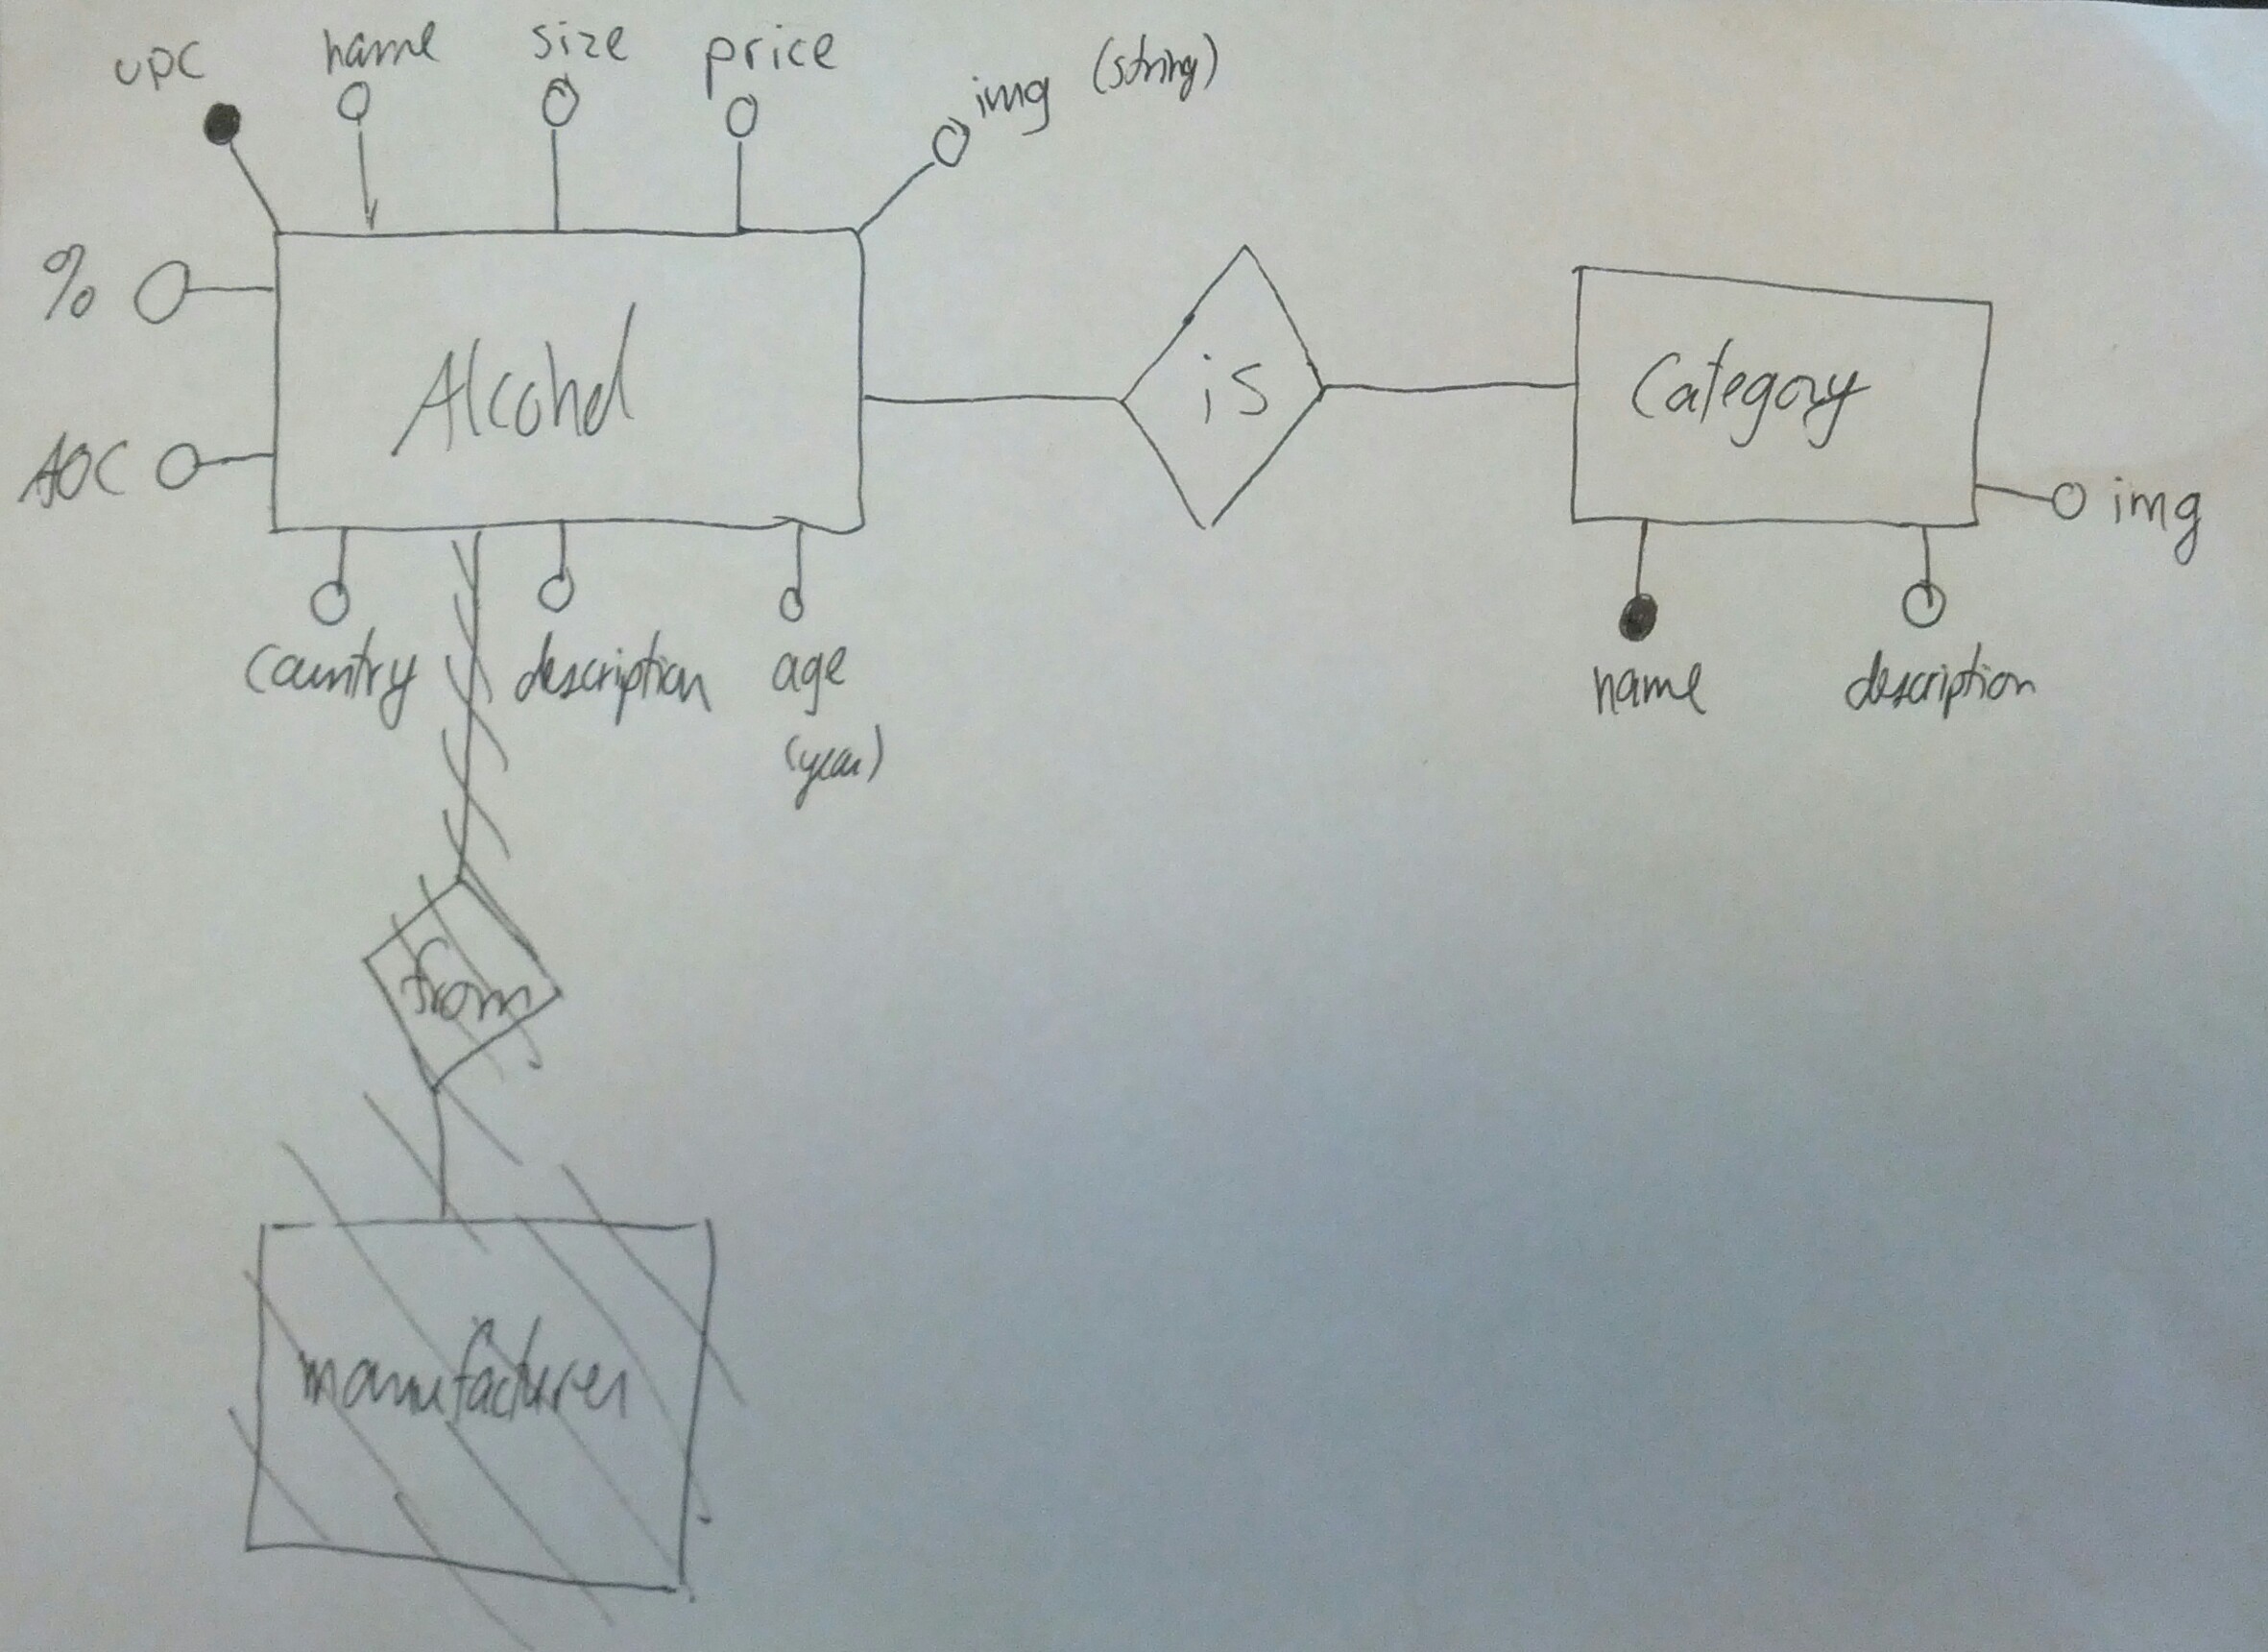 upc name size price img (string)
%
Alcohol
is
Category
AOC
img
country description age
(year)
name description
from
manufacturer